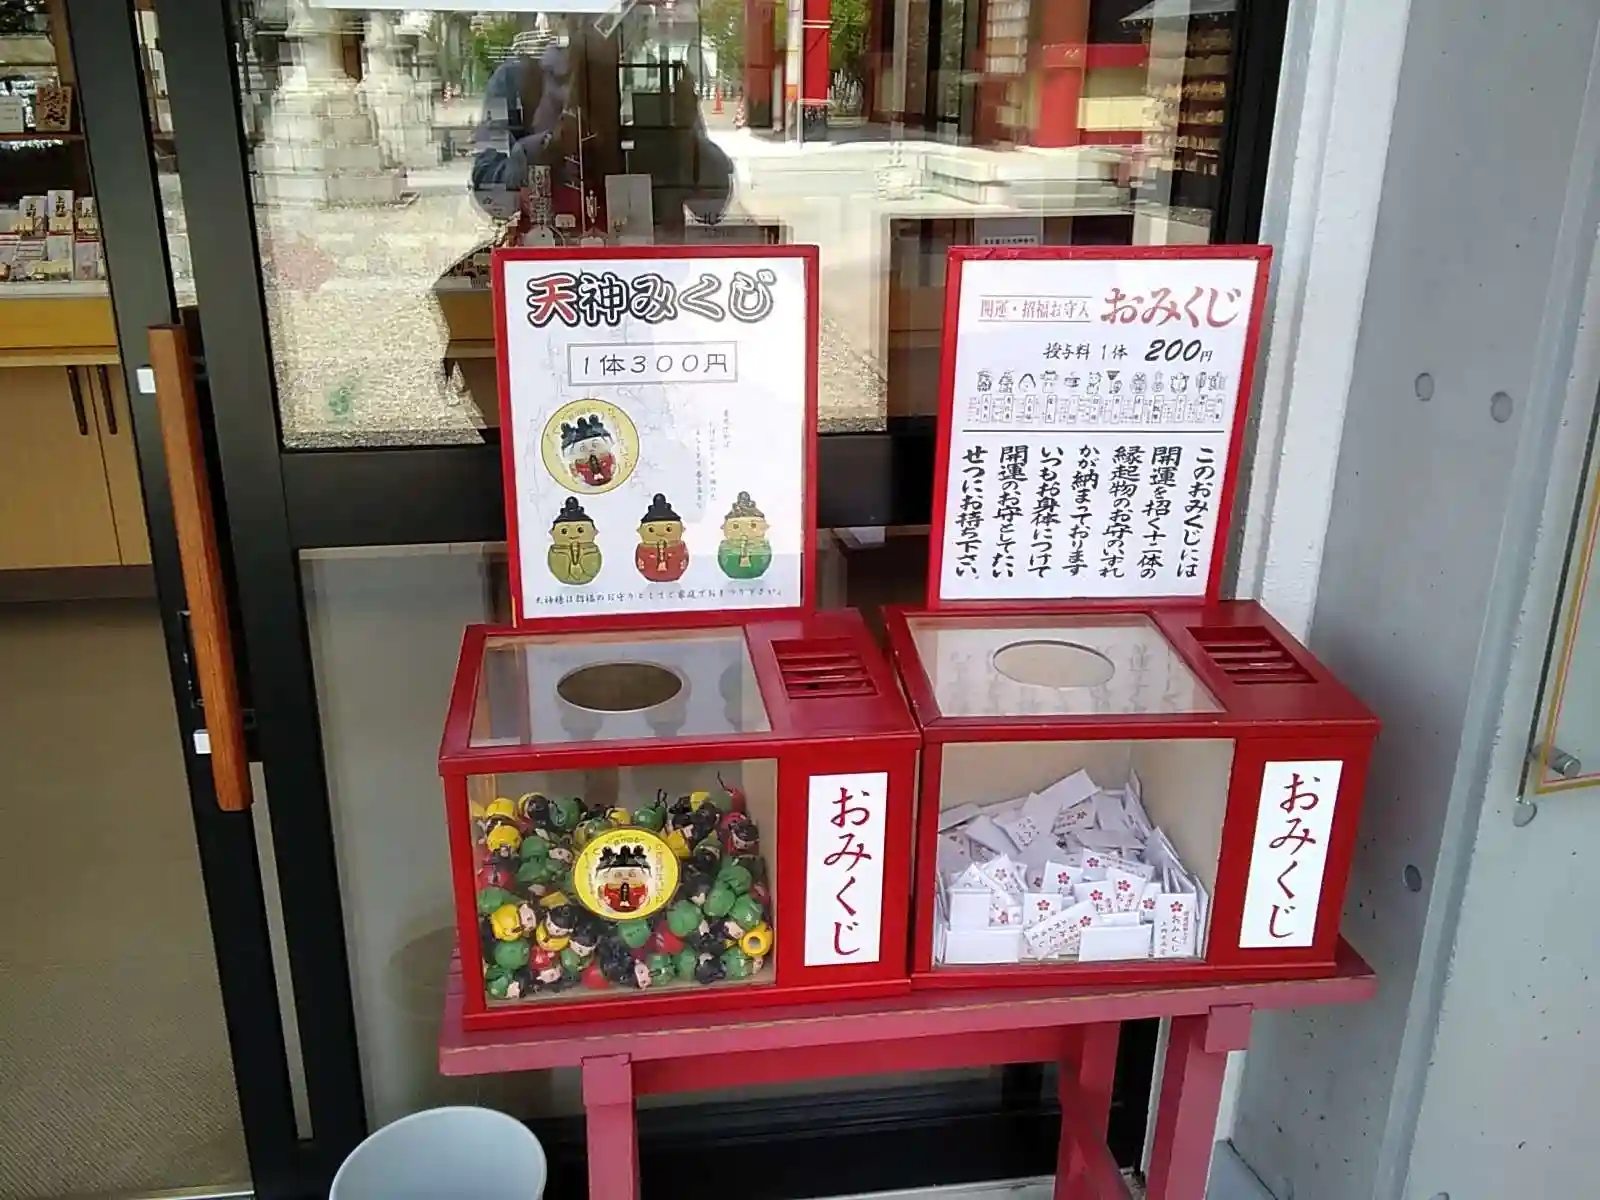 天神みくじ
1体300円
天神様は招福のお守りとしてご家庭でおまつり下さい。
開運・招福お守入 おみくじ
授与料 1体 200円
このおみくじには
開運を招く十二体の
縁起物のお守の、いずれ
かが納まっております
いつもお身体につけて
開運のお守としてたい
せつにお持ち下さい。
おみくじ
おみくじ